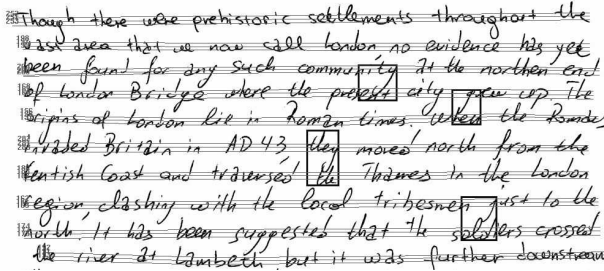 Though there were prehistoric settlements throughout the
vast area that we now call London, no evidence has yet
been found for any such community at the northen end
of London Bridge where the present city grew up. The
origins of London lie in Roman times. When the Romans
invaded Britain in AD 43, they moved north from the
Kentish Coast and traversed the Thames in the London
region clashing with the local tribesmen just to the
north. It has been suggested that the soldiers crossed
the river at Lambeth, but it was further downstream